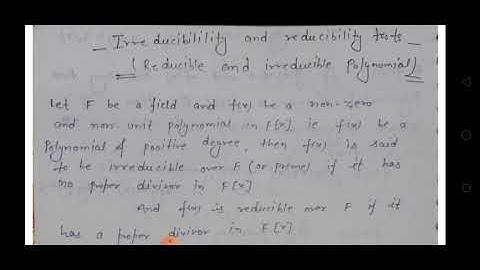 Irreducibilility and reducibility tests
(Reducible and irreducible Polynomial)
Let F be a field and f(x) be a non-zero
and non-unit polynomial in F[x], ie f(x) be a
Polynomial of positive degree, then f(x) is said
to be irreducible over F (or prime) if it has
no proper divisor in F[x]
And f(x) is reducible over F if it
has a proper divisor in F[x].